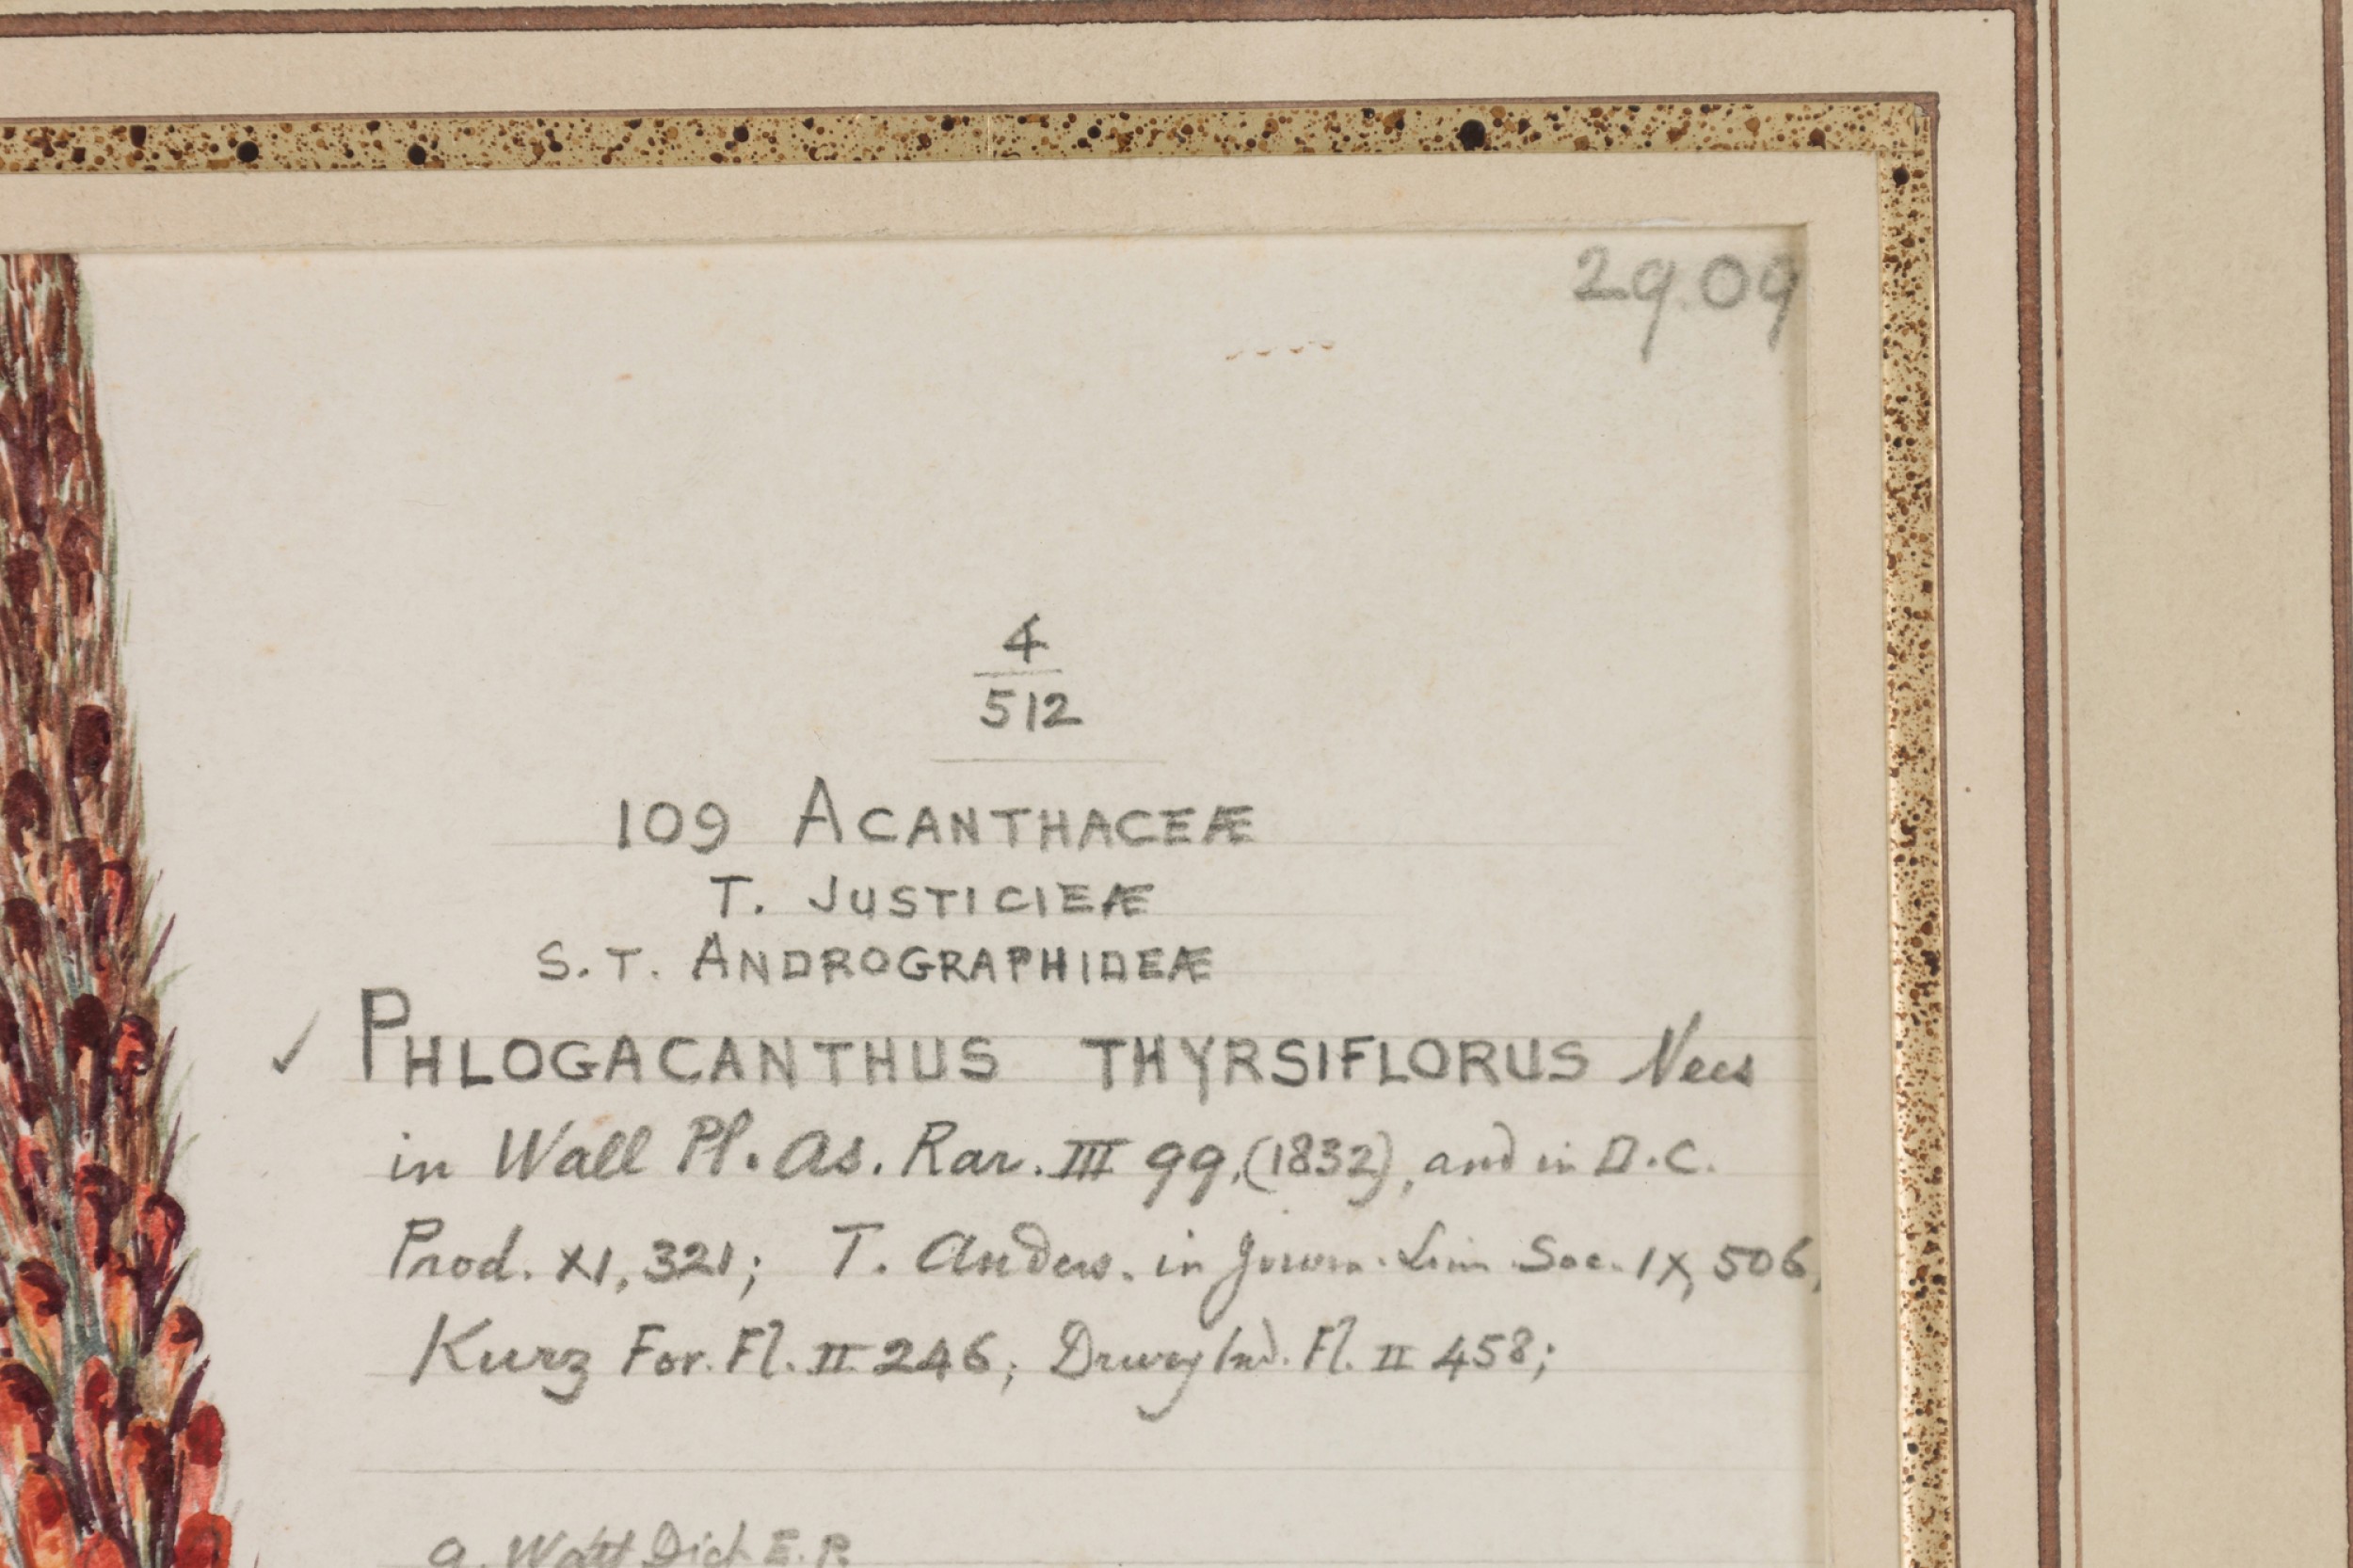 29.09
4
512
109 ACANTHACEÆ
T. JUSTICIEÆ
S.T. ANDROGRAPHIDEÆ
✓ PHLOGACANTHUS THYRSIFLORUS Nees
in Wall Pl. As. Rar. III 99, (1832), and in D.C.
Prod. XI, 321; T. Anders. in Journ. Linn. Soc. IX, 506,
Kurz For. Fl. II 246; Drury Ind. Fl. II 458;
Watt Dict E. P.